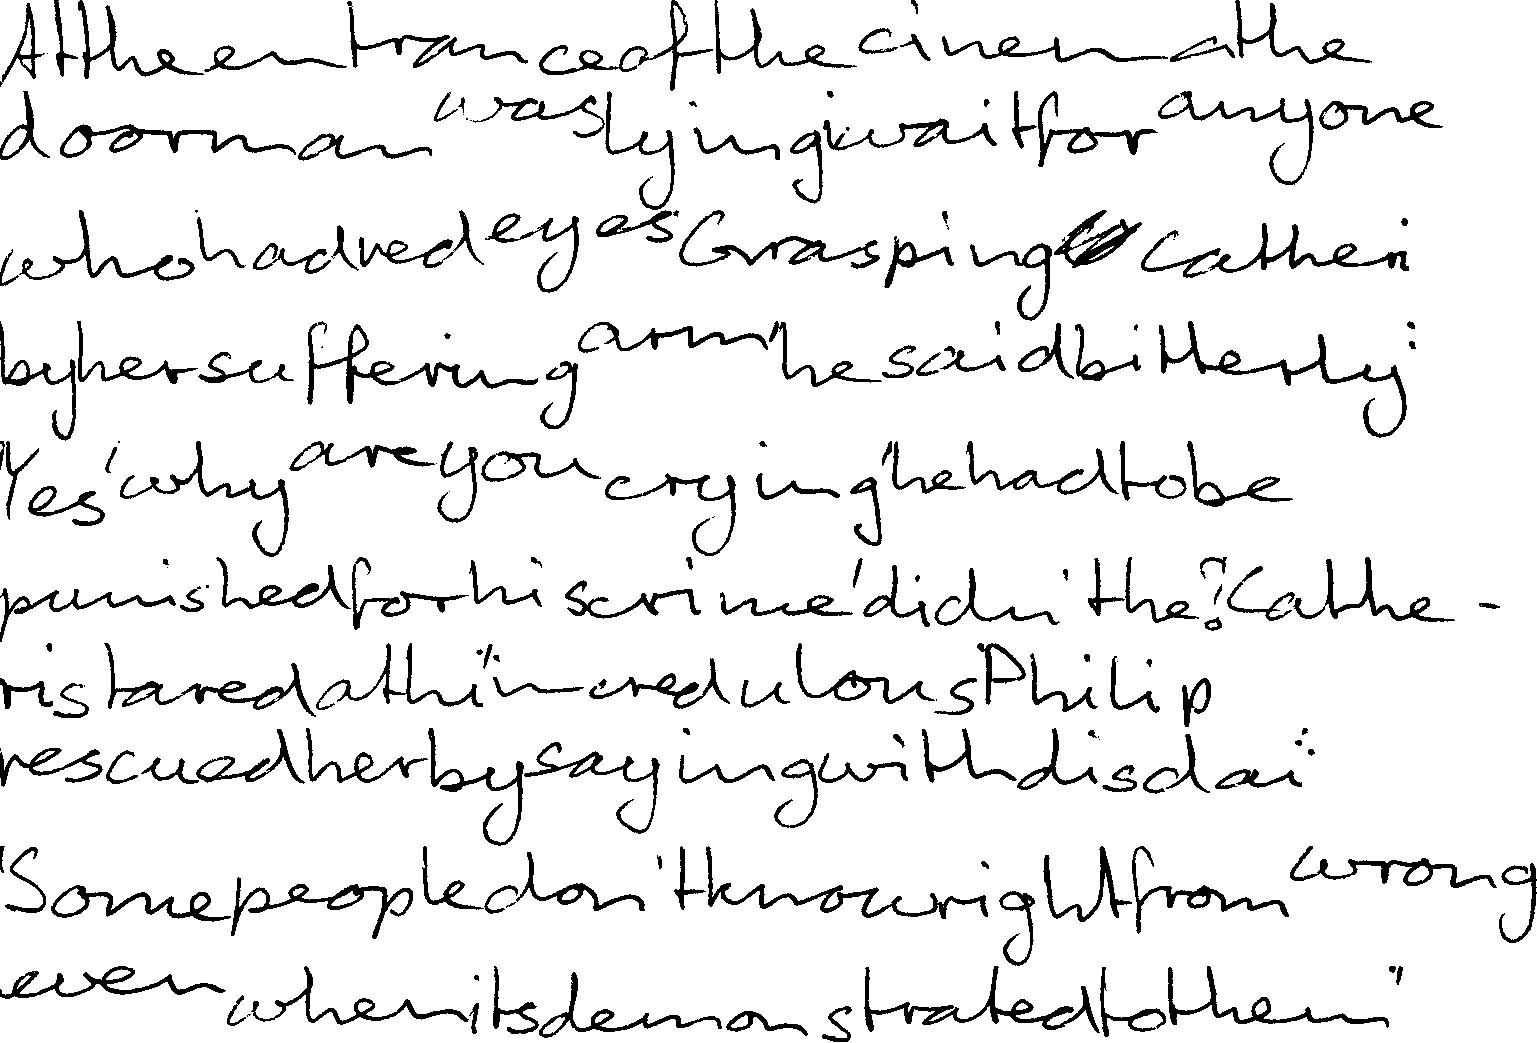 At the entrance of the cinema the
doorman was lying i wait for anyone
who had red eyes Grasping Catheri
by her suffering arm he said bitterly:
"Yes' why are you crying" he had to be
punished for his crime' didn't he? Cathe-
ri stared at hi in credulous Philip
rescued her by saying with disdai:
"Some people don't know right from wrong
even when its demonstrated to them"